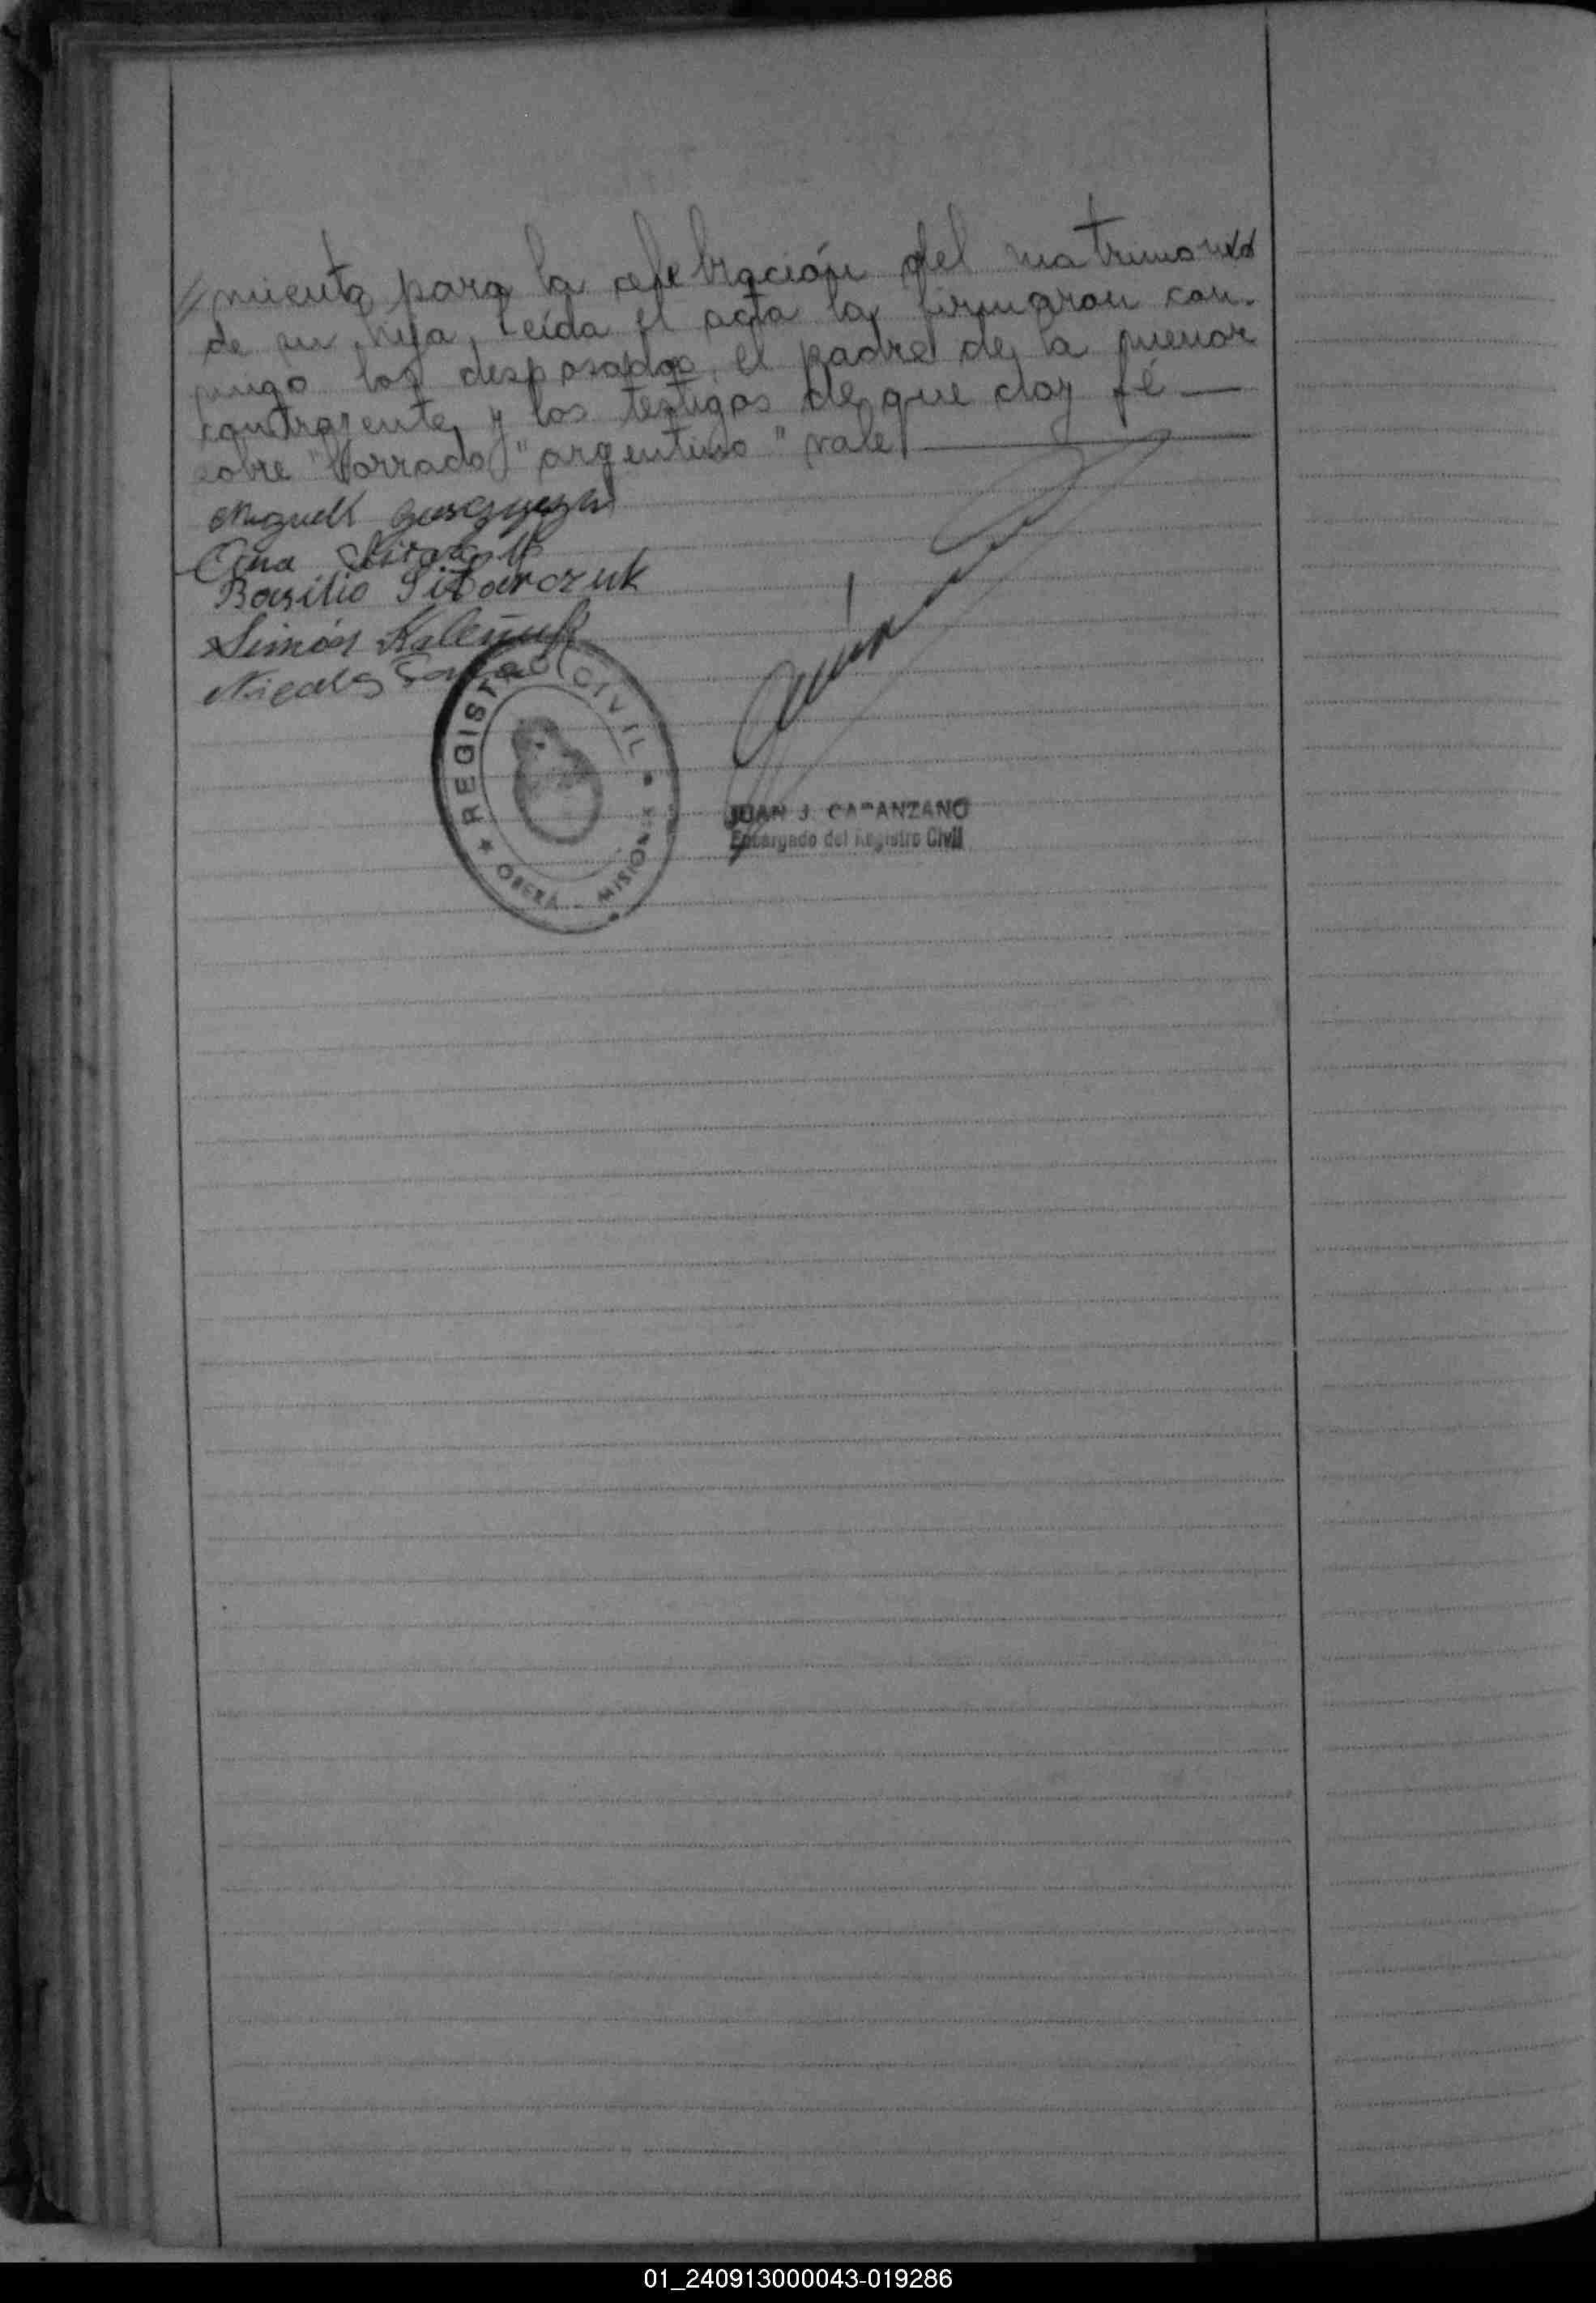 //miento para la celebración del matrimonio
de su hija, leída el acta la firmaron con-
migo los desposados, el padre de la menor
contrayente y los testigos de que doy fé —
sobre "borrado" "argentino" vale
Ana
Basilio Sitarczuk
Simón
Nicolas
REGISTRO CIVIL
OBERÁ - MISIONES
JUAN J. CATANZANO
Encargado del Registro Civil
01_240913000043-019286